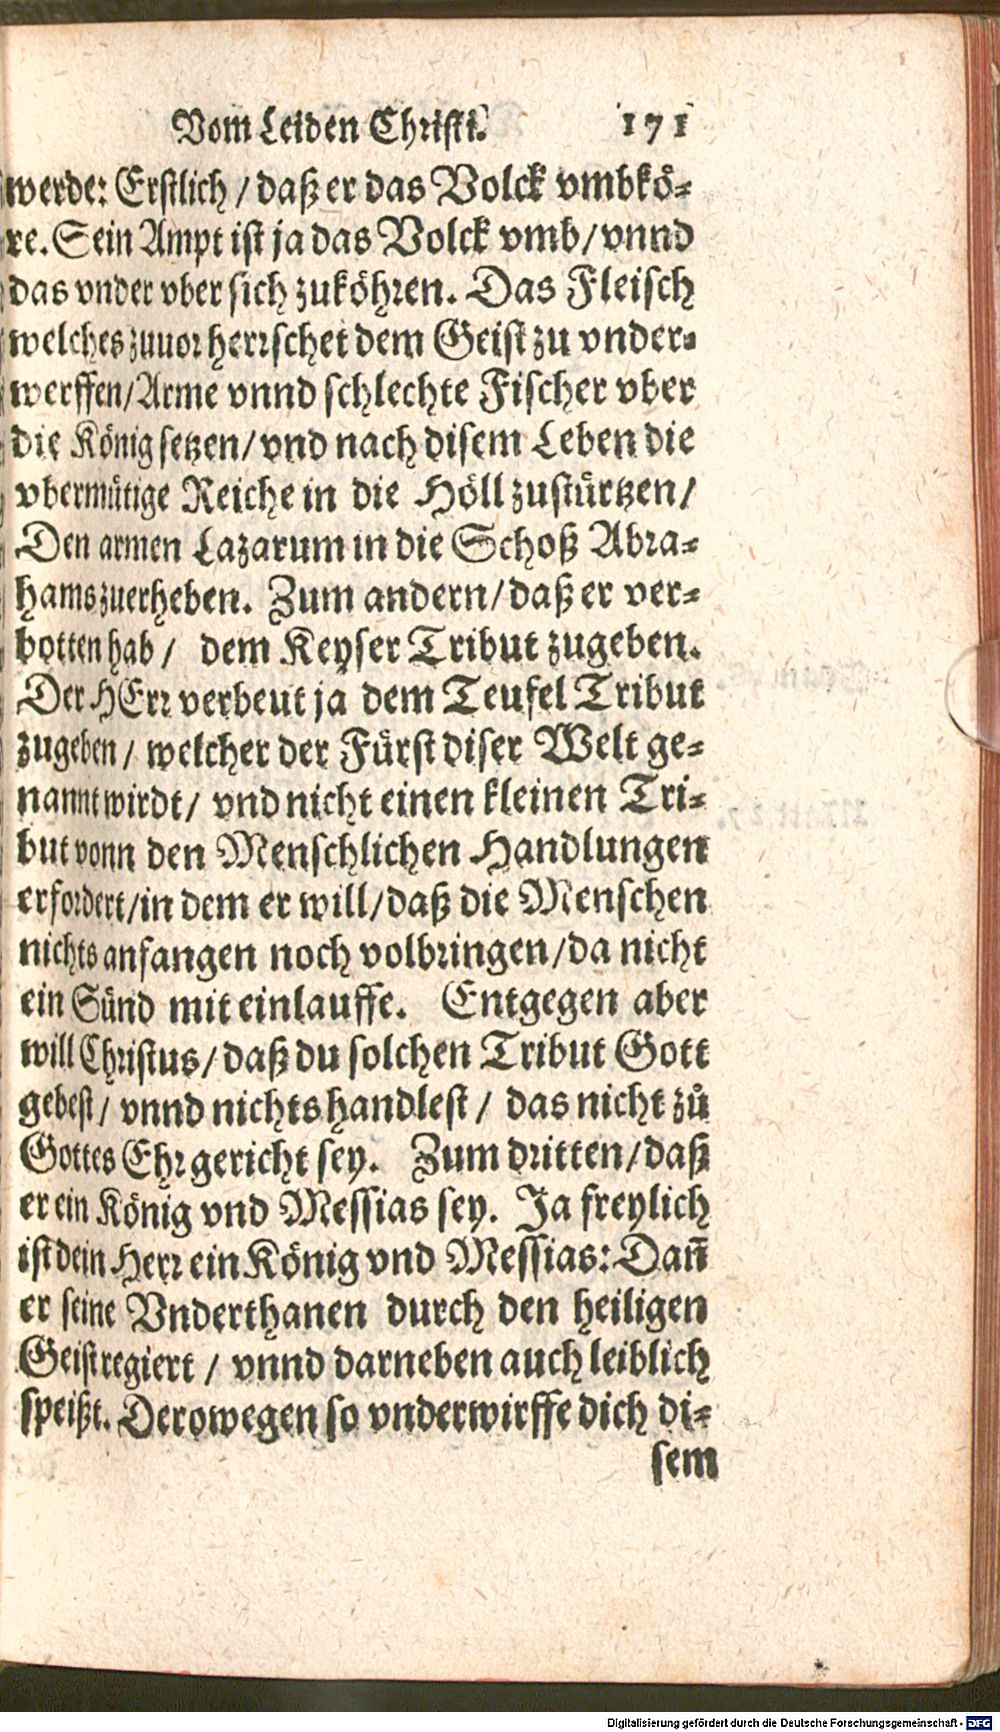 Vom Leiden Christi. 171
werde: Erstlich / daß er das Volck vmbkö-
re. Sein Ampt ist ja das Volck vmb / vnnd
das vnder vber sich zuköhren. Das Fleisch
welches zuuor herrschet dem Geist zu vnder-
werffen / Arme vnnd schlechte Fischer vber
die König setzen / vnd nach disem Leben die
vbermütige Reiche in die Höll zustürtzen /
Den armen Lazarum in die Schoß Abra-
hams zuerheben. Zum andern / daß er ver-
botten hab / dem Keyser Tribut zugeben.
Der HErr verbeut ja dem Teufel Tribut
zugeben / welcher der Fürst diser Welt ge-
nannt wirdt / vnd nicht einen kleinen Tri-
but vonn den Menschlichen Handlungen
erfordert / in dem er will / daß die Menschen
nichts anfangen noch volbringen / da nicht
ein Sünd mit einlauffe. Entgegen aber
will Christus / daß du solchen Tribut Gott
gebest / vnnd nichts handlest / das nicht zů
Gottes Ehr gericht sey. Zum dritten / daß
er ein König vnd Messias sey. Ja freylich
ist dein Herr ein König vnd Messias: Dañ
er seine Vnderthanen durch den heiligen
Geist regiert / vnnd darneben auch leiblich
speißt. Derowegen so vnderwirffe dich di-
sem
Digitalisierung gefördert durch die Deutsche Forschungsgemeinschaft - DFG